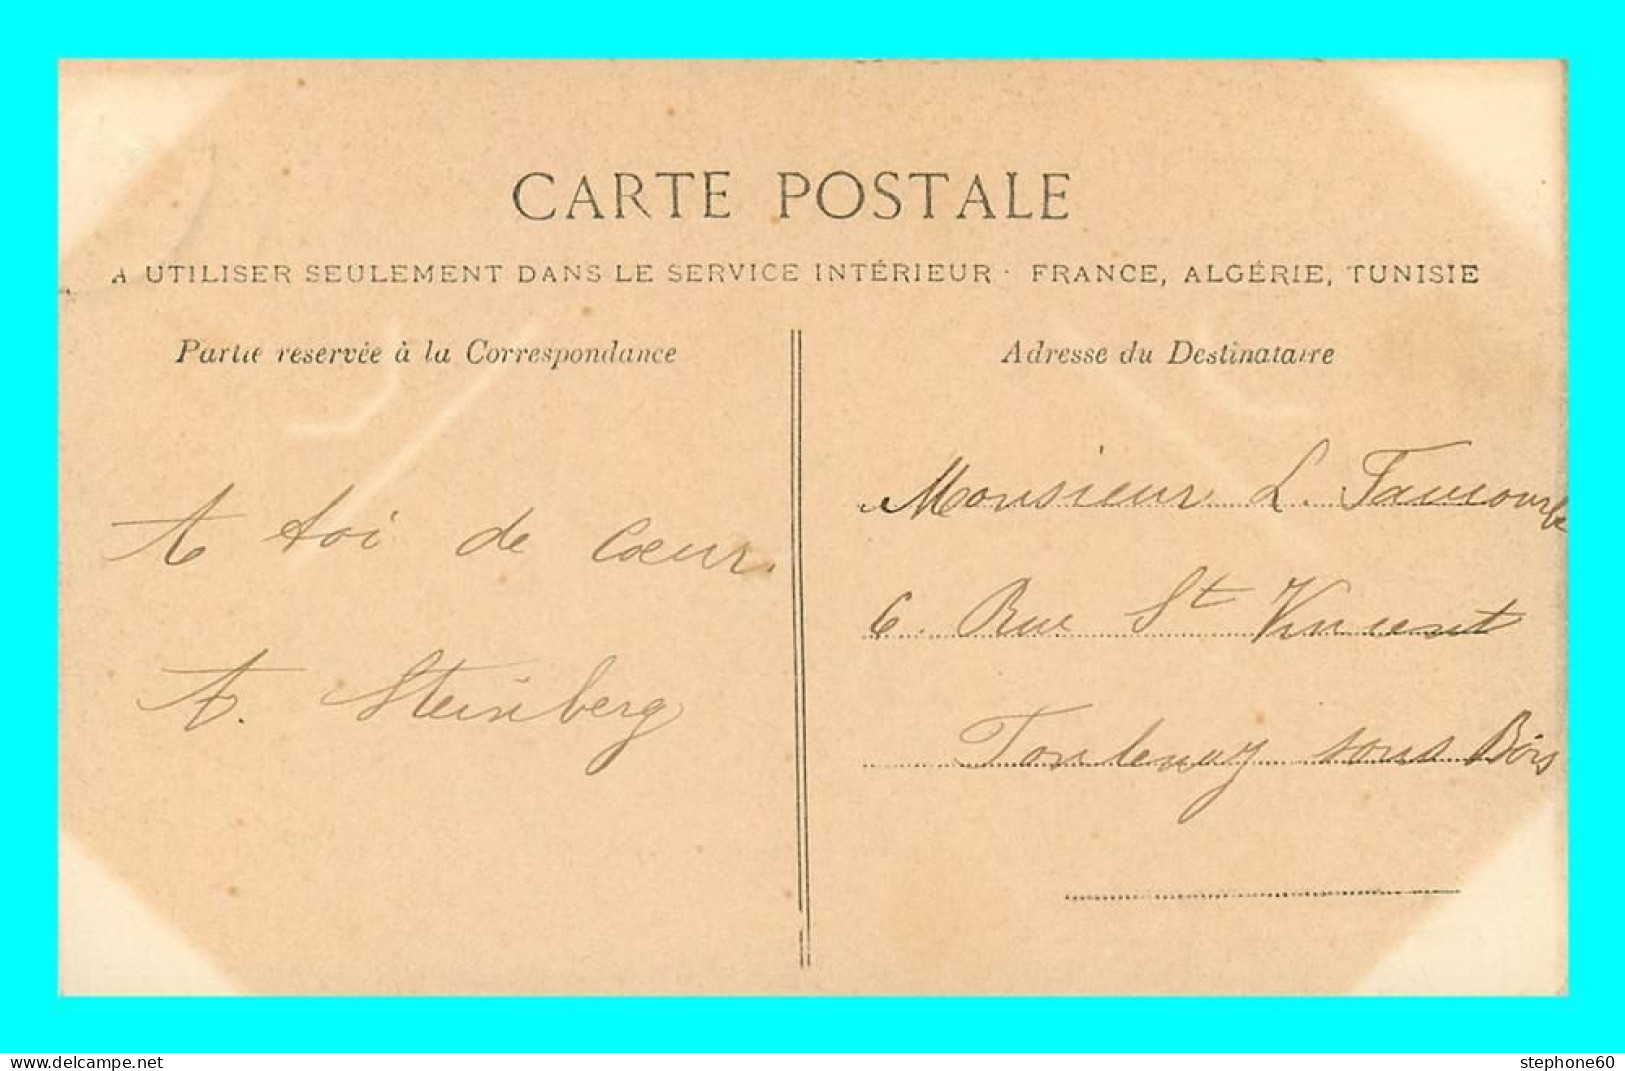 CARTE POSTALE
A UTILISER SEULEMENT DANS LE SERVICE INTÉRIEUR · FRANCE, ALGÉRIE, TUNISIE
Partie reservée à la Correspondance
A toi de cœur.
A. Steinberg
Adresse du Destinataire
Monsieur L.
6. Rue St Vincent
Fontenay sous Bois
delcampe.net
stephone60